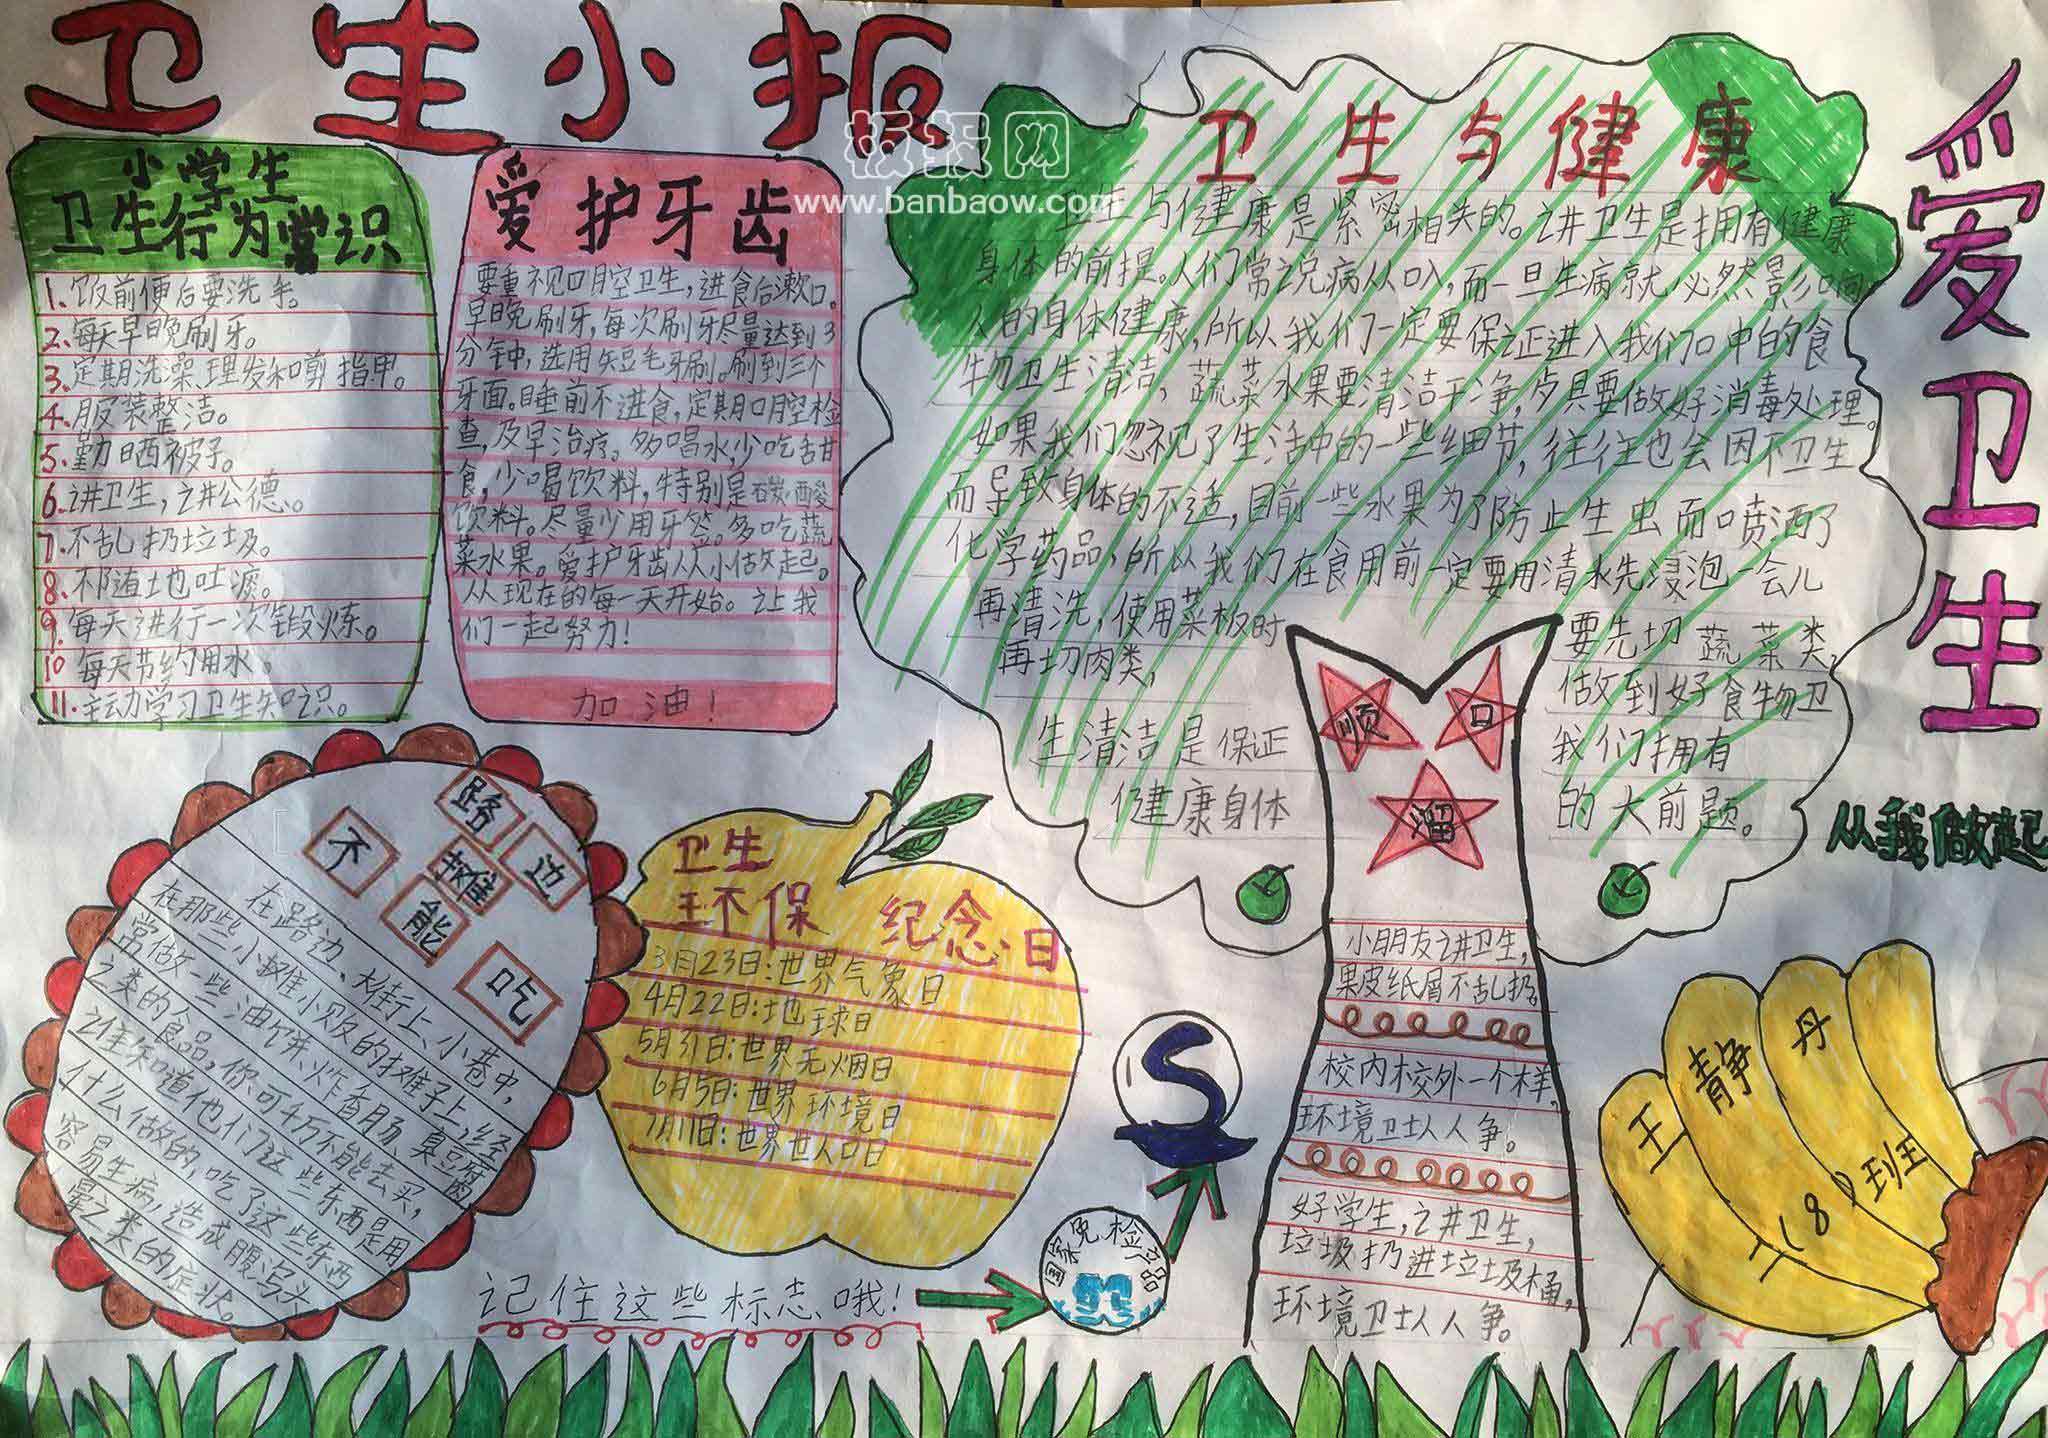 卫生小报
板报网
www.banbaow.com
小学生
卫生行为常识
1.饭前便后要洗手。
2.每天早晚刷牙。
3.定期洗澡、理发和剪指甲。
4.服装整洁。
5.勤晒被子。
6.讲卫生,讲公德。
7.不乱扔垃圾。
8.不随地吐痰。
9.每天进行一次锻炼。
10 每天节约用水。
11.主动学习卫生知识。
爱护牙齿
要重视口腔卫生,进食后漱口。
早晚刷牙,每次刷牙尽量达到3
分钟,选用短毛牙刷。刷到三个
牙面。睡前不进食,定期口腔检
查,及早治疗。多喝水,少吃甜
食,少喝饮料,特别是碳酸
饮料。尽量少用牙签。多吃蔬
菜水果。爱护牙齿从小做起。
从现在的每一天开始。让我
们一起努力!
加油!
卫生与健康
卫生与健康是紧密相关的。讲卫生是拥有健康
身体的前提。人们常说病从口入,而一旦生病就必然影响
人的身体健康,所以我们一定要保证进入我们口中的食
物卫生清洁,蔬菜水果要清洁干净,歺具要做好消毒处理。
如果我们忽视了生活中的一些细节,往往也会因不卫生
而导致身体的不适,目前一些水果为了防止生虫而喷洒了
化学药品,所以我们在食用前一定要用清水先浸泡一会儿
再清洗,使用菜板时
要先切蔬菜类,
再切肉类,
做到好食物卫
生清洁是保证
我们拥有
健康身体
的大前题。
爱卫生
从我做起
路边
摊
不能吃
在路边、大街上、小巷中,
在那些小摊小贩的摊子上,经
常做一些油饼、炸香肠、臭豆腐
之类的食品,你可千万不能去买,
谁知道他们这些东西是用
什么做的,吃了这些东西
容易生病,造成腹泻、头
晕之类的症状。
卫生
环保 纪念日
3月23日:世界气象日
4月22日:地球日
5月31日:世界无烟日
6月5日:世界环境日
7月11日:世界世人口日
记住这些标志哦!
国家免检产品
S
顺口
溜
小朋友讲卫生,
果皮纸屑不乱扔。
校内校外一个样,
环境卫士人人争。
好学生,讲卫生,
垃圾扔进垃圾桶,
环境卫士人人争。
王静丹